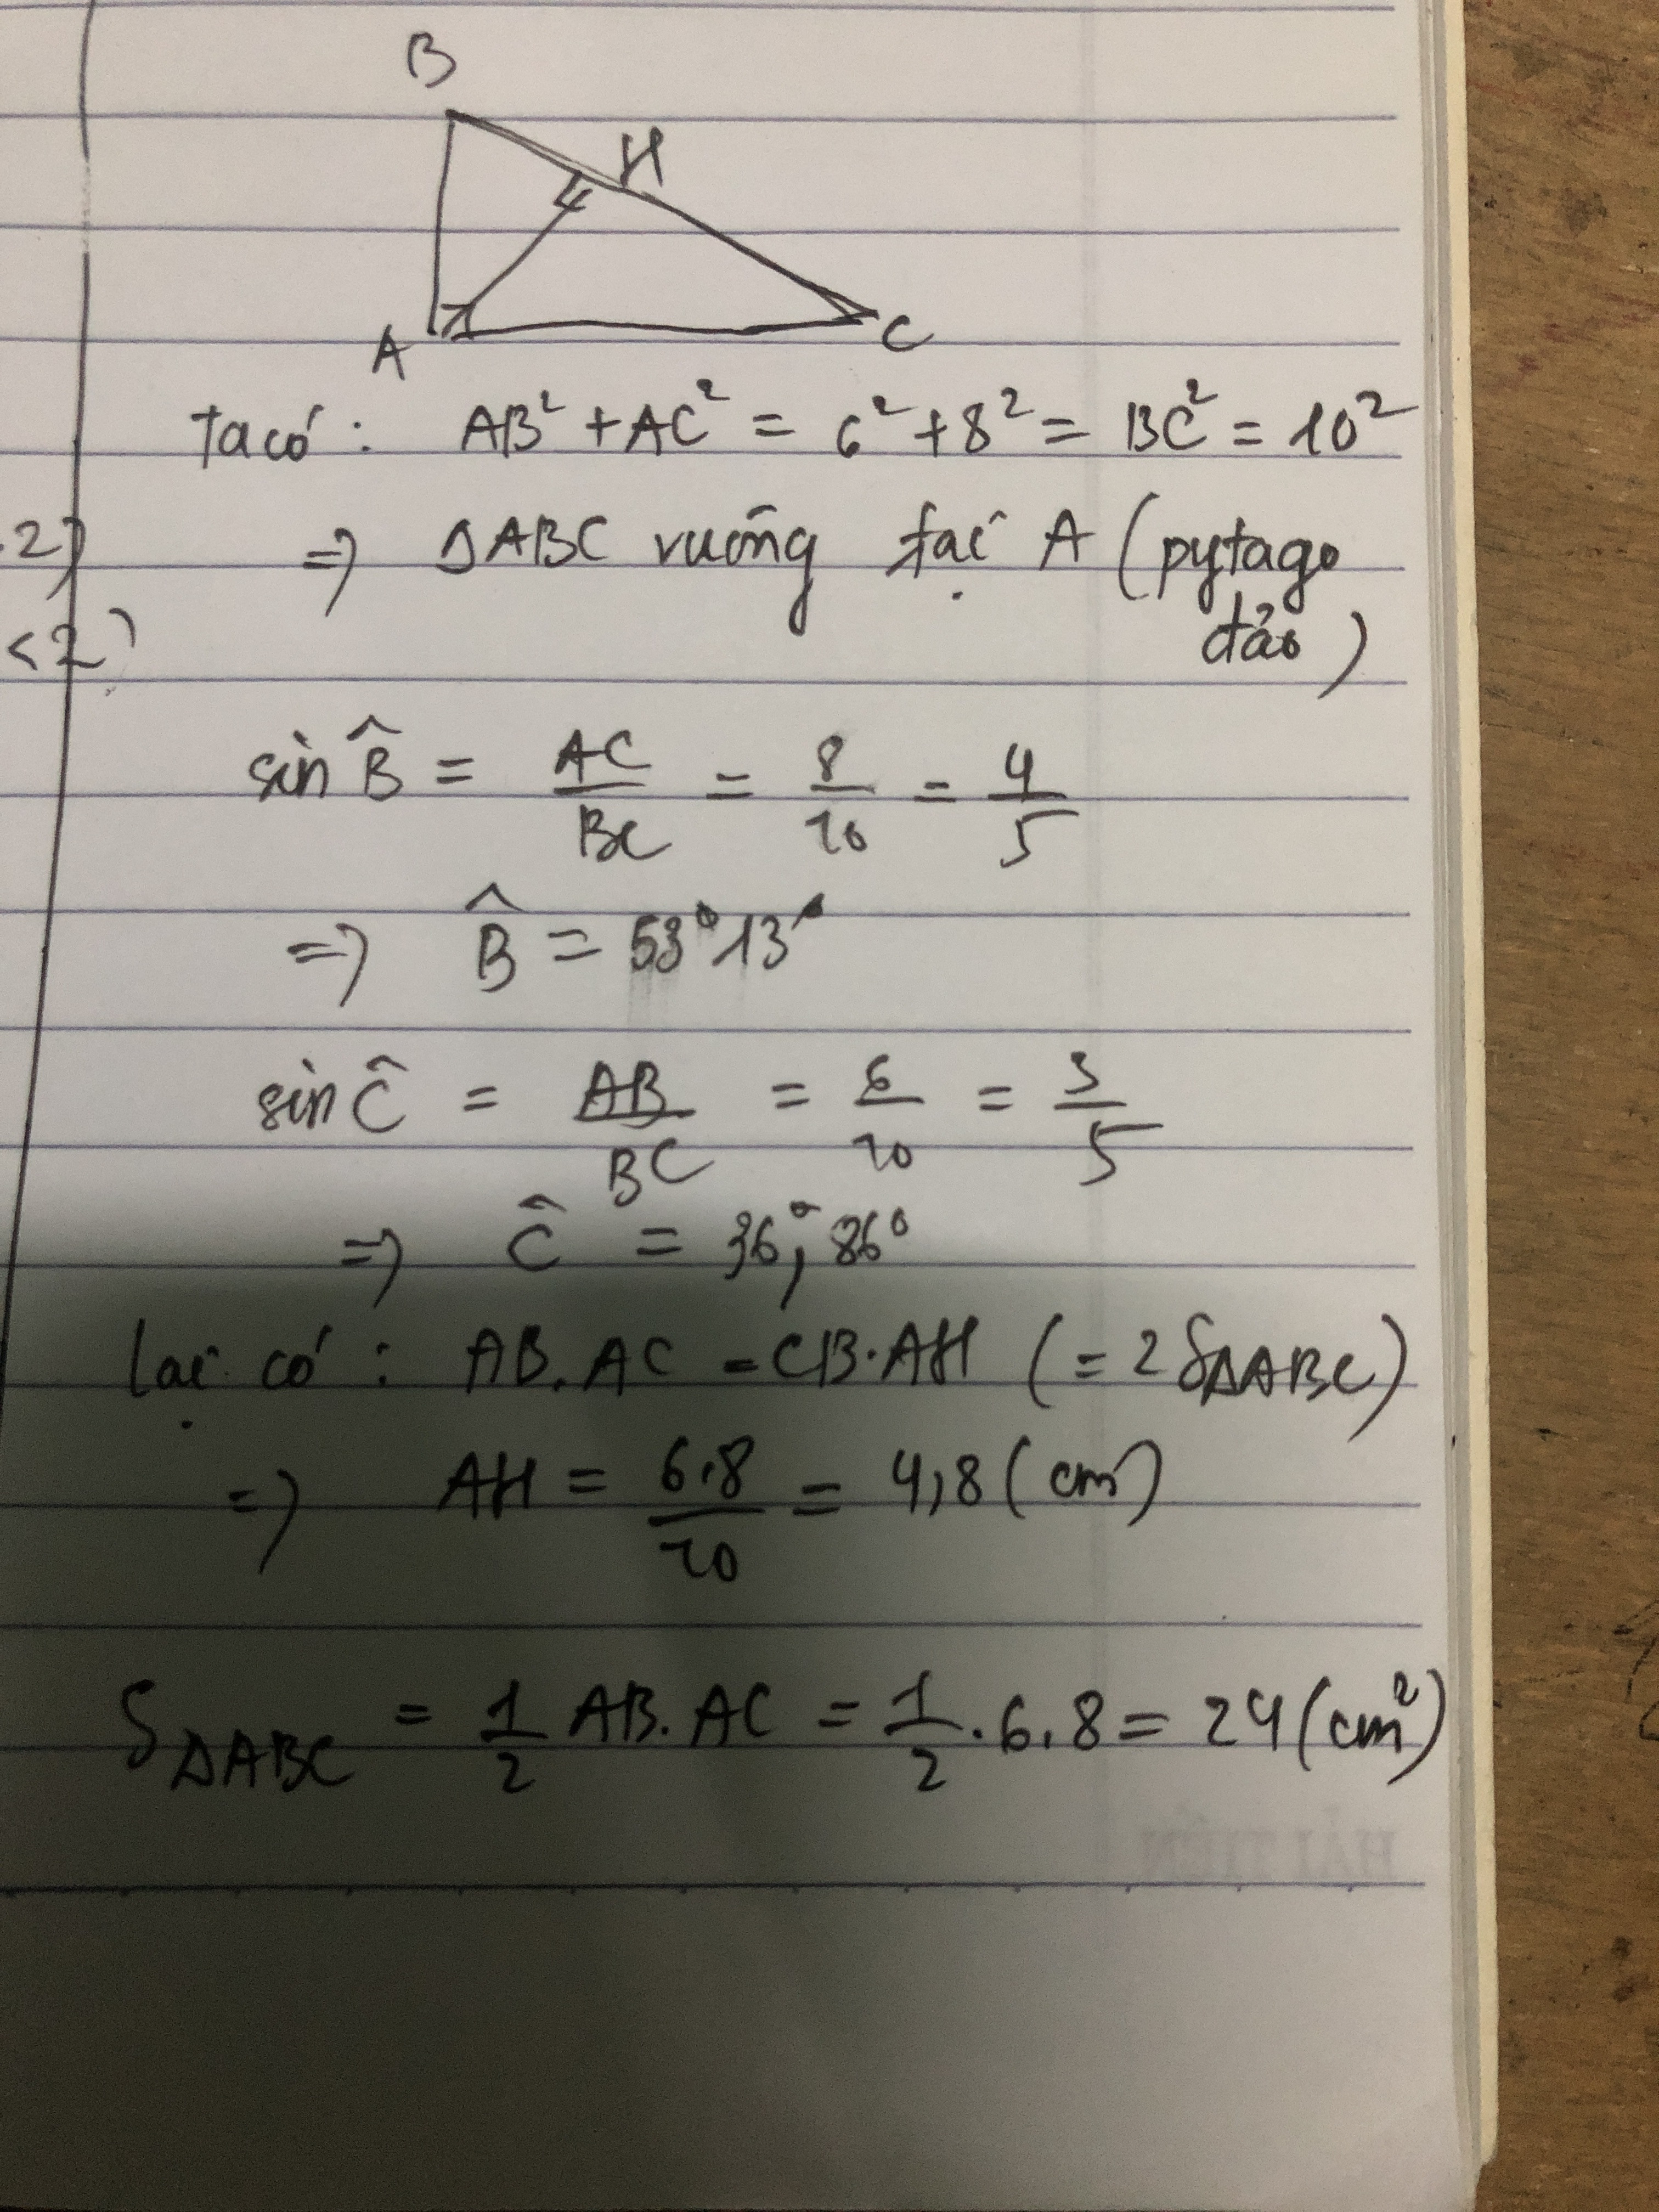 B
H
A
C
Ta có : AB² + AC² = 6² + 8² = BC² = 10²
.2)
=> ΔABC vuông tại A (pytago
đảo)
<2)
sin B̂ = AC/BC = 8/10 = 4/5
=> B̂ = 53°13'
sin Ĉ = AB/BC = 6/10 = 3/5
=> Ĉ = 36°,86°
lại có : AB.AC = CB.AH (= 2SΔABC)
=> AH = 6.8/10 = 4,8 (cm)
SΔABC = 1/2 AB.AC = 1/2 . 6.8 = 24 (cm²)
HẢI TIẾN